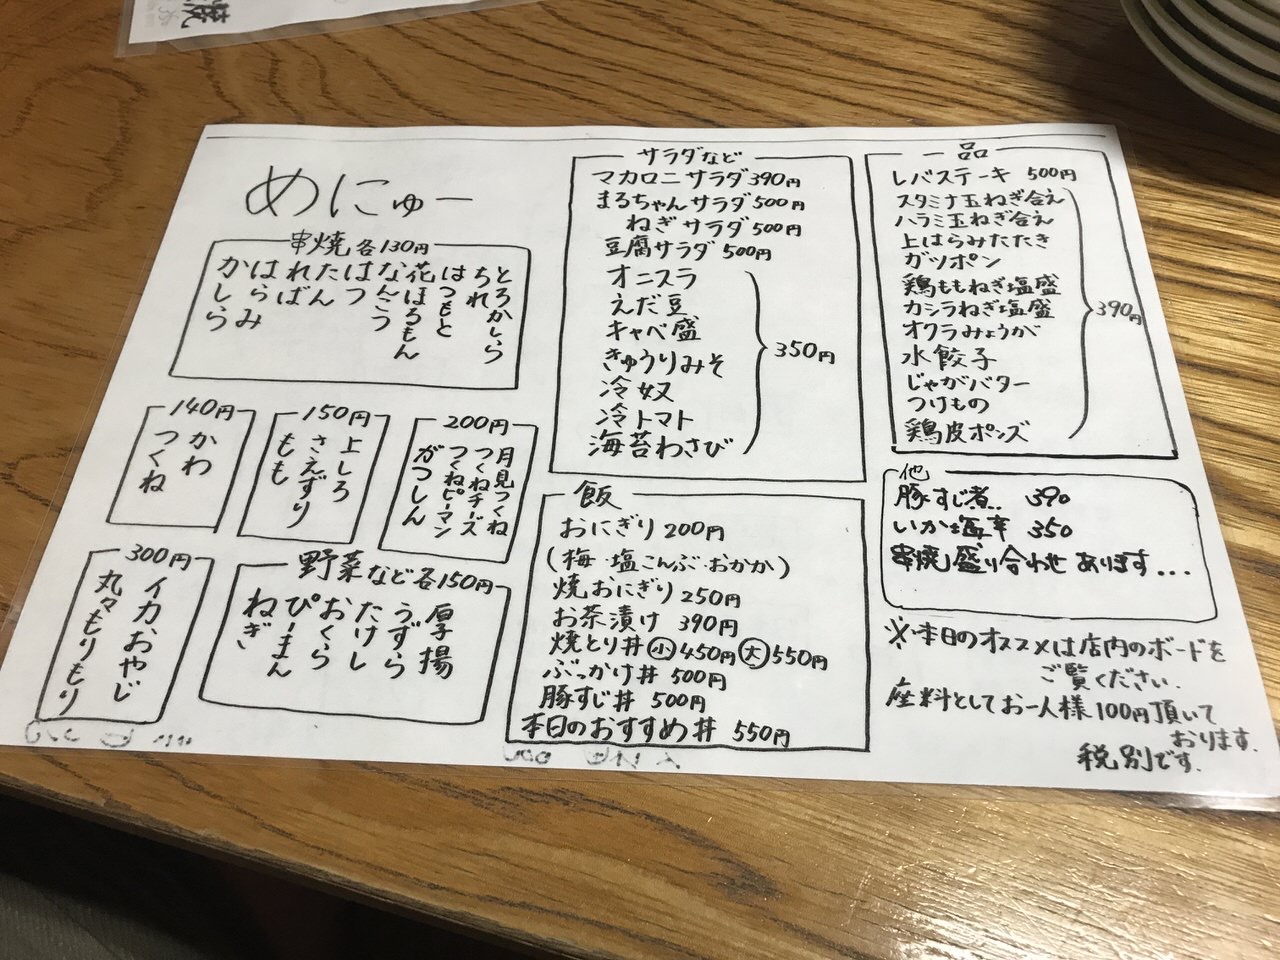 めにゅー
串焼 各130円
とろかしら
ちれ
はつもと
花ほるもん
なんこう
はつ
たん
ればー
はらみ
かしら
140円
かわ
つくね
150円
上しろ
さえずり
もも
200円
月見つくね
つくねチーズ
つくねピーマン
がつしん
300円
イカおやじ
丸々もりもり
野菜など各150円
厚揚
うずら
たけし
おくら
ぴーまん
ねぎ
サラダなど
マカロニサラダ390円
まるちゃんサラダ500円
ねぎサラダ500円
豆腐サラダ500円
オニスラ
えだ豆
キャベ盛
きゅうりみそ
冷奴
冷トマト
海苔わさび
350円
飯
おにぎり 200円
(梅・塩こんぶ・おかか)
焼おにぎり 250円
お茶漬け 390円
焼とり丼 小 450円 大 550円
ぶっかけ丼 500円
豚すじ丼 500円
本日のおすすめ丼 550円
一品
レバステーキ 500円
スタミナ玉ねぎ合え
ハラミ玉ねぎ合え
上はらみたたき
ガツポン
鶏ももねぎ塩盛
カシラねぎ塩盛
オクラみょうが
水餃子
じゃがバター
つけもの
鶏皮ポンズ
390円
他
豚すじ煮.. 390
いか塩辛 350
串焼盛り合わせあります...
※本日のオススメは店内のボードを
ご覧ください.
座料としてお一人様100円頂いて
おります.
税別です.